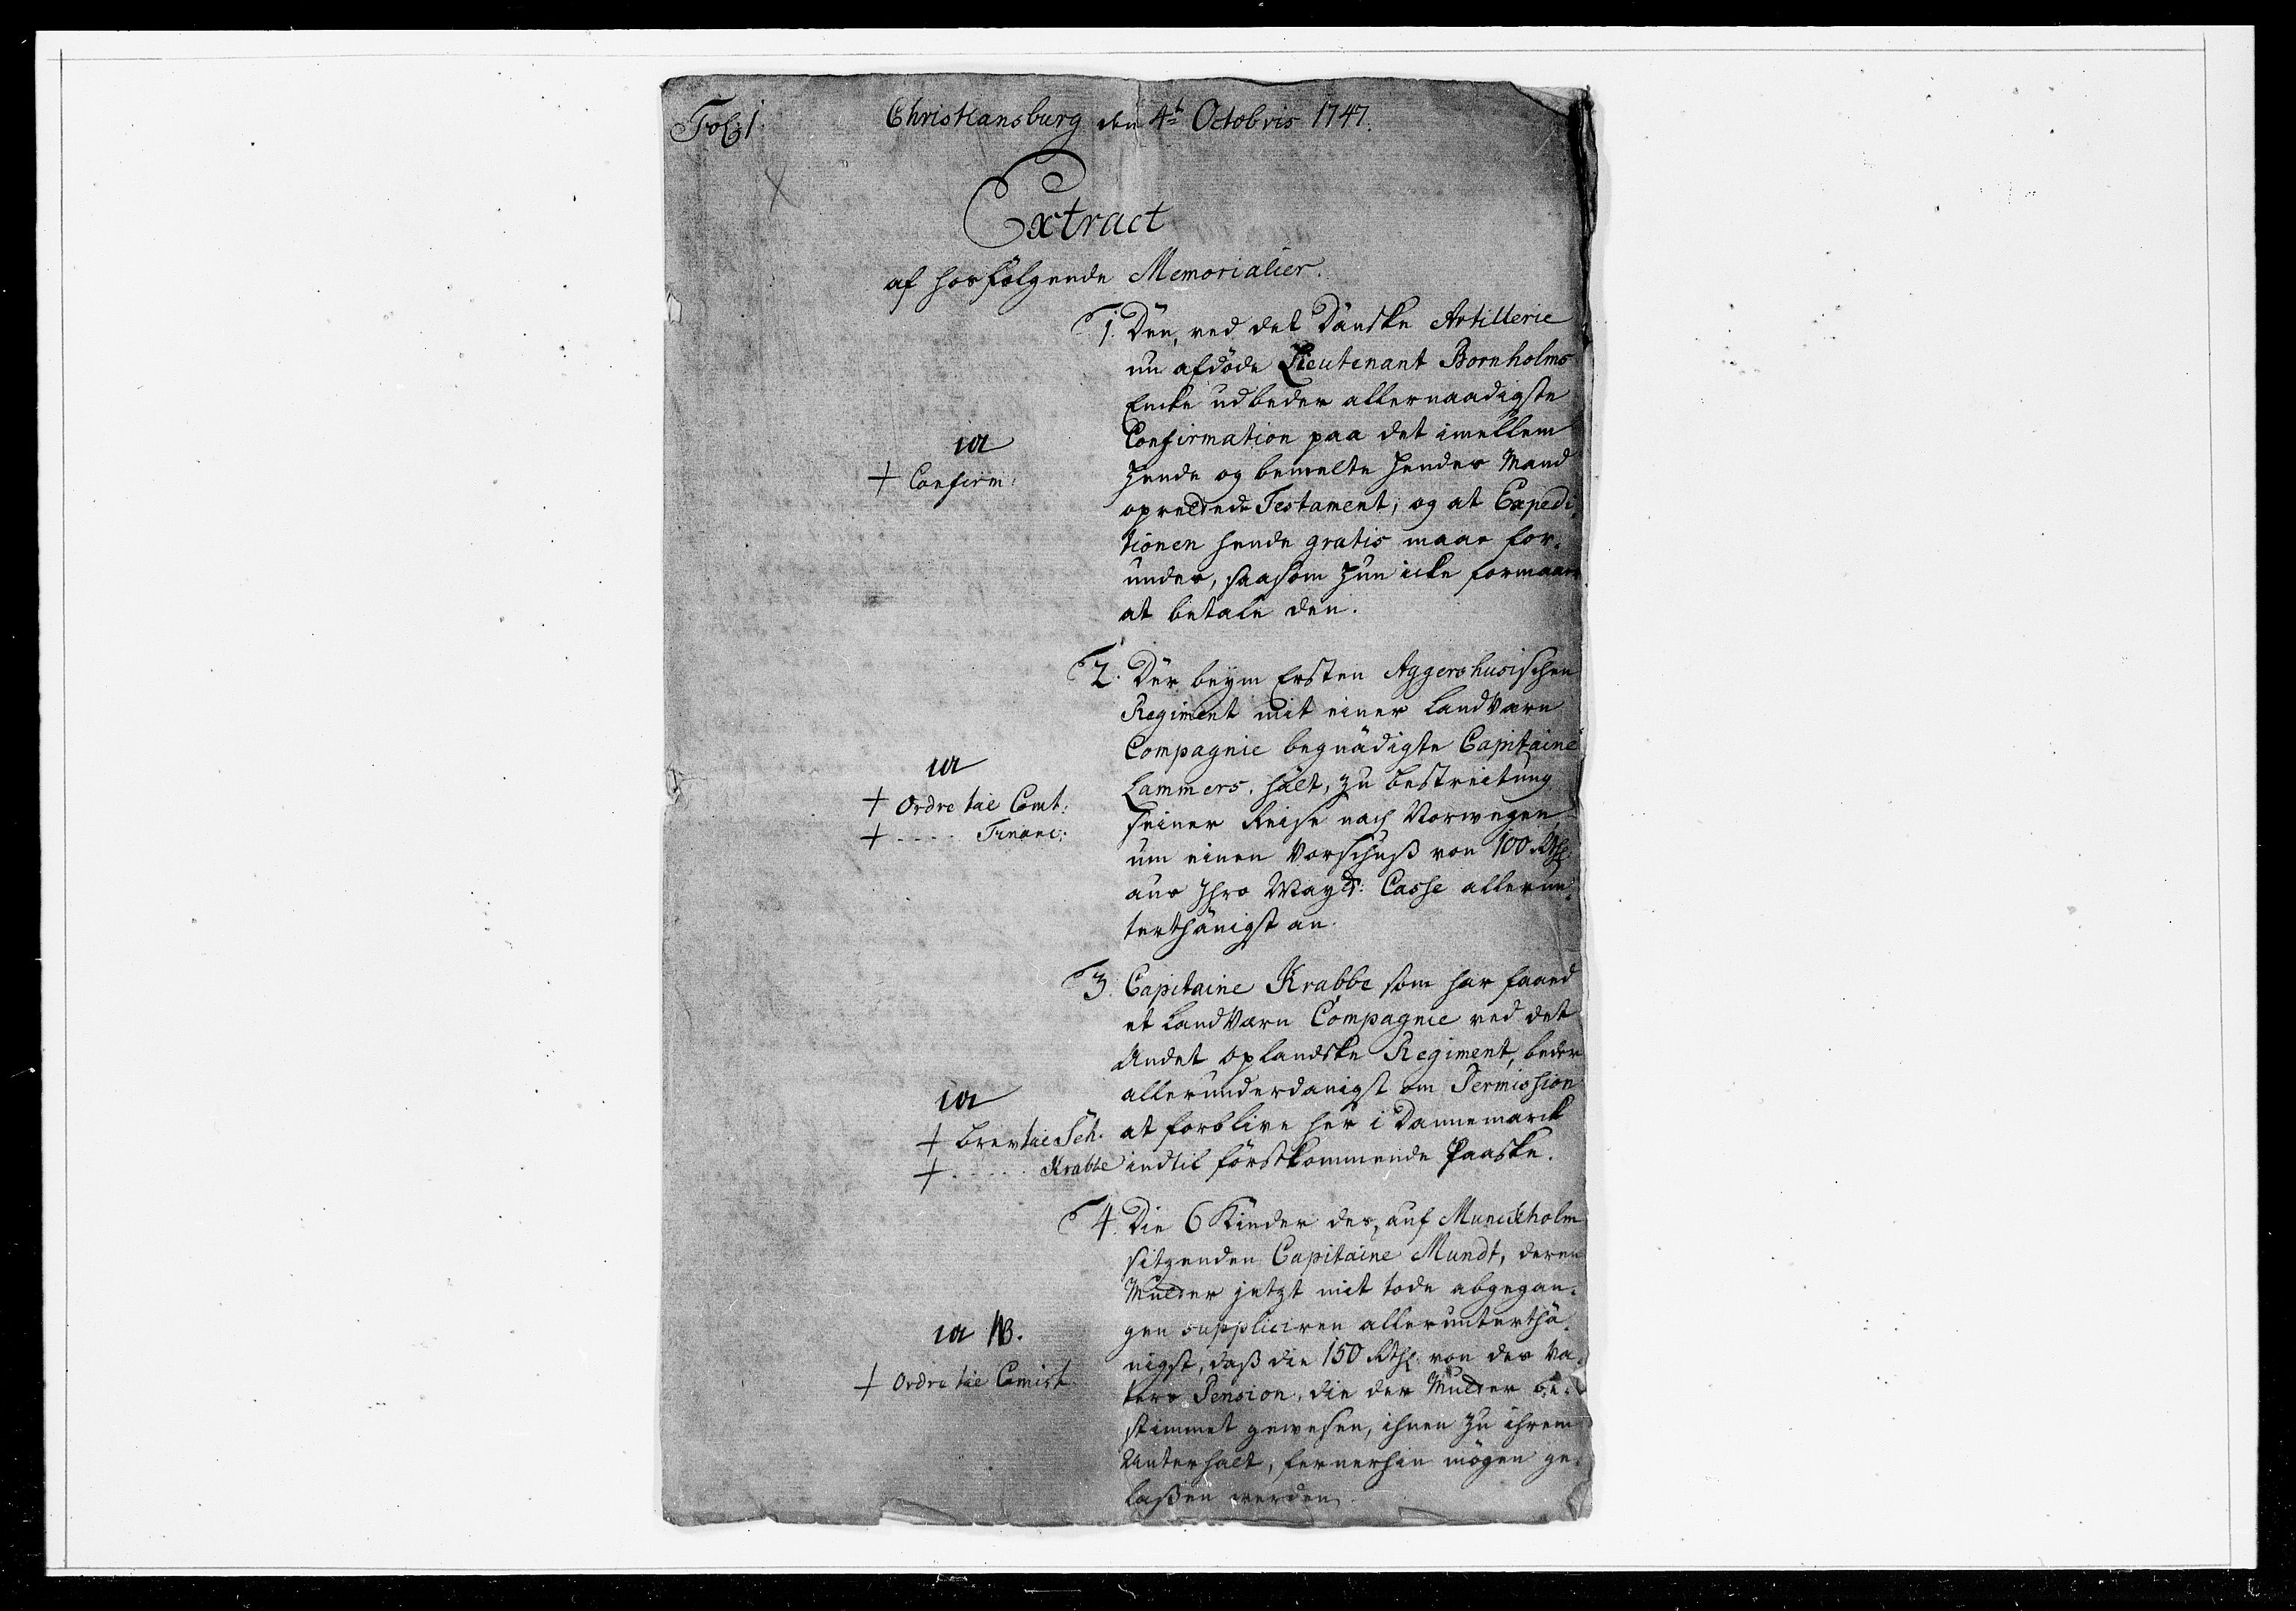 Fol: 1.
Christiansburg den 4t Octobris 1747.
Extract
af hosfølgende Memorialier.
1. Den, ved det Danske Artillerie
nu afdøde Lieutenant Bornholms
Encke udbeder allernaadigste
Confirmation paa det imellem
hende og bemelte hendes Mand
oprettede Testament, og at Expedi-
tionen hende gratis maae for-
undes, saasom hun icke formaaer
at betale den.
ia
+ Confirm:
2. Der beym Ersten Aggershusischen
Regiment mit einer LandVærn
Compagnie begnädigte Capitaine
Lammers, hält, zu bestreitung
seiner Reise nach Norwegen,
um einen Vorschuß von 100 Rthl
aus Ihro Mayt: Casse allerun-
terthänigst an.
ia
+ Ordre til Comt:
+ - - - - Financ:
3. Capitaine Krabbe som har faaed
et LandVærn Compagnie ved det
Andet Oplandske Regiment, beder
allerunderdanigst om Permission
at forblive her i Dannemarck
indtil førstkommende Paaske.
ia
+ Brev til Sch.
+ - - - - - Krabbe
4. Die 6 Kinder des, auf Munckholm
sitzenden Capitaine Mundt, deren
Mutter jetzt mit tode abgegan-
gen suppliciren allerunterthä-
nigst, daß die 150 Rthl. von des Va-
ters Pension, die der Mutter be-
stimmet gewesen, ihnen zu ihrem
Unterhalt, fernerhin mögen ge-
laßen werden.
ia NB.
+ Ordre til Comist